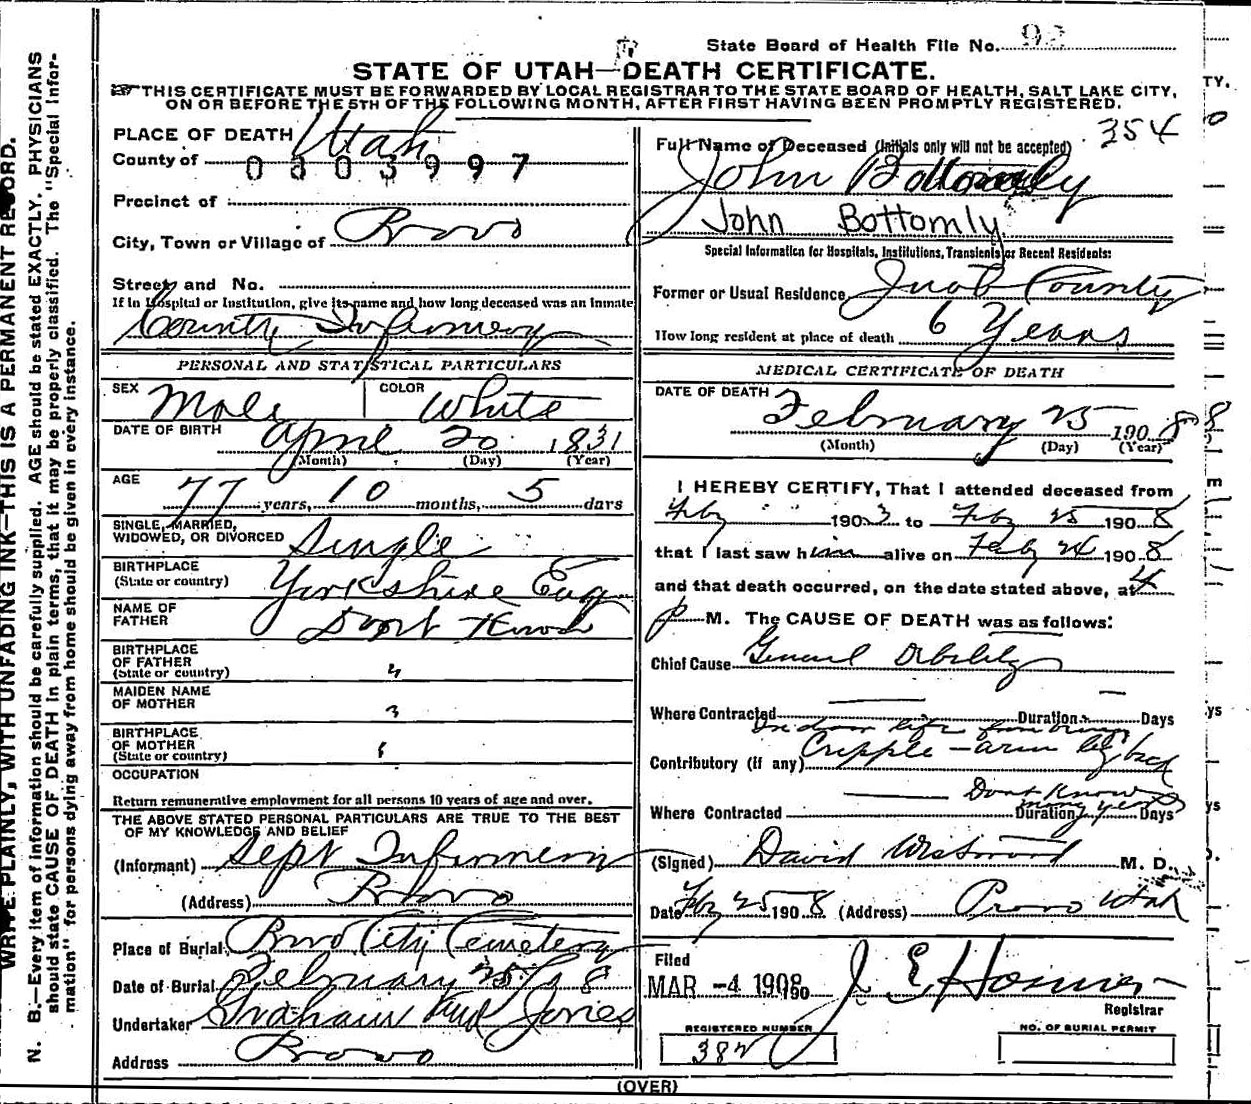 State Board of Health File No. 92
STATE OF UTAH—DEATH CERTIFICATE.
THIS CERTIFICATE MUST BE FORWARDED BY LOCAL REGISTRAR TO THE STATE BOARD OF HEALTH, SALT LAKE CITY,
ON OR BEFORE THE 5TH OF THE FOLLOWING MONTH, AFTER FIRST HAVING BEEN PROMPTLY REGISTERED.
WRITE PLAINLY, WITH UNFADING INK—THIS IS A PERMANENT RECORD.
N. B.—Every item of information should be carefully supplied. AGE should be stated EXACTLY. PHYSICIANS
should state CAUSE OF DEATH in plain terms, that it may be properly classified. The "Special Infor-
mation" for persons dying away from home should be given in every instance.
PLACE OF DEATH
County of Utah
0803997
Precinct of
City, Town or Village of Provo
Street and No.
If in Hospital or Institution, give its name and how long deceased was an inmate
County Infirmery
PERSONAL AND STATISTICAL PARTICULARS
SEX Male COLOR White
DATE OF BIRTH April 20 1831
(Month) (Day) (Year)
AGE
77 years, 10 months, 5 days
SINGLE, MARRIED,
WIDOWED, OR DIVORCED Single
BIRTHPLACE
(State or country) Yorkshire Eng
NAME OF
FATHER Dont Know
BIRTHPLACE
OF FATHER
(State or country) "
MAIDEN NAME
OF MOTHER
BIRTHPLACE
OF MOTHER
(State or country)
OCCUPATION
Return remunerative employment for all persons 10 years of age and over.
THE ABOVE STATED PERSONAL PARTICULARS ARE TRUE TO THE BEST
OF MY KNOWLEDGE AND BELIEF
(Informant) Supt Infirmery
(Address) Provo
Place of Burial Provo City Cemetery
Date of Burial February 25/1908
Undertaker Graham and Jones
Address Provo
354
Full Name of Deceased (Initials only will not be accepted)
John Bottomly
John Bottomly
Special Information for Hospitals, Institutions, Transients or Recent Residents:
Former or Usual Residence Juab County
How long resident at place of death 6 Years
MEDICAL CERTIFICATE OF DEATH
DATE OF DEATH
February 25 1908 8
(Month) (Day) (Year)
I HEREBY CERTIFY, That I attended deceased from
Feby 1903 to Feby 25 1908
that I last saw him alive on Feby 24 1908
and that death occurred, on the date stated above, at 4
p M. The CAUSE OF DEATH was as follows:
Chief Cause General Debility
Where Contracted Duration Days
In door life from being
Contributory (if any) Cripple—arm leg back
Dont Know
Where Contracted Duration many years Days
(Signed) David Westwood M. D.
Date Feby 25 1908 (Address) Provo Utah
Filed
MAR -4 1908 190 J E Hosmer
Registrar
REGISTERED NUMBER NO. OF BURIAL PERMIT
382
(OVER)